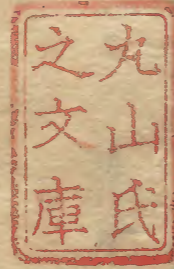 丸山氏
之文庫